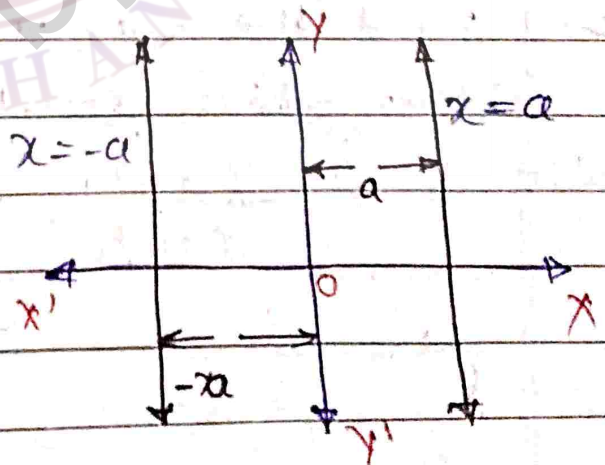 HAN
Y
x = a
x = -a
a
O
X'
X
-xa
Y'